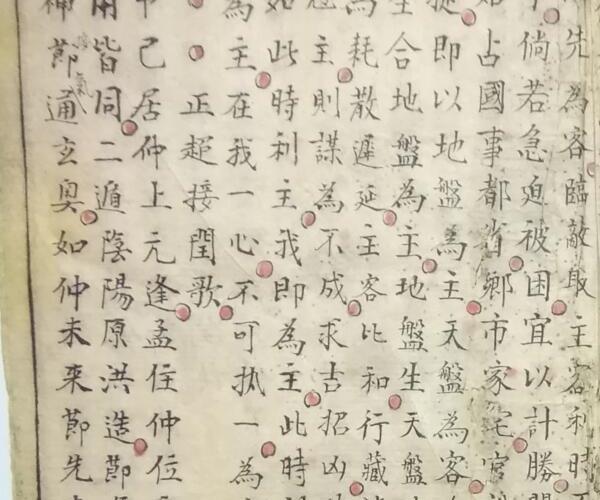 先為客臨敵取主客利時
倘若急迫被困宜以計勝
如占國事都省鄉市家宅宮
即以地盤為主天盤為客
生合地盤為主地盤生天盤
為耗散遲延主客比和行藏
主則謀為不成求吉招凶
如此時利主我即為主此時
為主在我一心不可执一為
正超接閏歌
甲己居仲上元逢孟住仲位
用皆同二遁陰陽原洪造節
神節氣通玄奧如仲未来節先